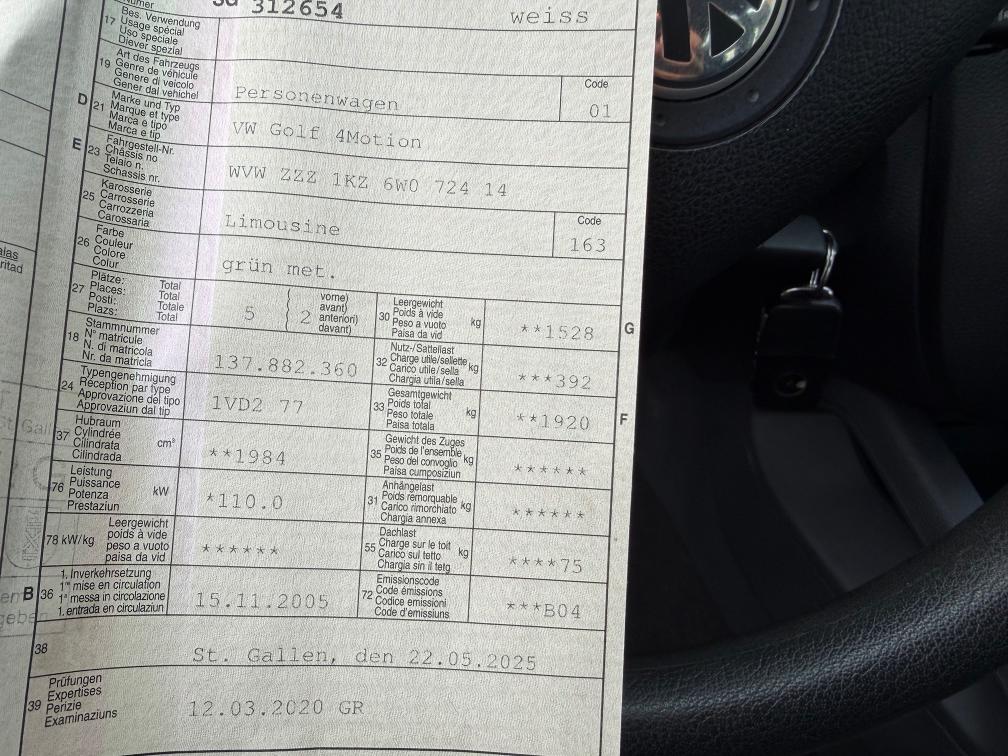 SG 312654
weiss
17 Bes. Verwendung
Usage spécial
Uso speciale
Diever spezial
19 Art des Fahrzeugs
Genre de véhicule
Genere di veicolo
Gener dal vehichel
Personenwagen
Code
01
D 21 Marke und Typ
Marque et type
Marca e tipo
Marca e tip
VW Golf 4Motion
E 23 Fahrgestell-Nr.
Châssis no
Telaio n.
Schassis nr.
WVW ZZZ 1KZ 6W0 724 14
25 Karosserie
Carrosserie
Carrozzeria
Carossaria
Limousine
Code
163
26 Farbe
Couleur
Colore
Colur
grün met.
27 Plätze: Total
Places: Total
Posti: Totale
Plazs: Total
5
2
vorne)
avant)
anteriori)
davant)
30 Leergewicht
Poids à vide
Peso a vuoto
Paisa da vid
kg
**1528
G
18 Stammnummer
N° matricule
N. di matricola
Nr. da matricla
137.882.360
32 Nutz-/Sattellast
Charge utile/sellette
Carico utile/sella
Chargia utila/sella
kg
***392
24 Typengenehmigung
Réception par type
Approvazione del tipo
Approvaziun dal tip
1VD2 77
33 Gesamtgewicht
Poids total
Peso totale
Paisa totala
kg
**1920
F
37 Hubraum
Cylindrée
Cilindrata
Cilindrada
cm³
**1984
35 Gewicht des Zuges
Poids de l'ensemble
Peso del convoglio
Paisa cumposiziun
kg
******
76 Leistung
Puissance
Potenza
Prestaziun
kW
*110.0
31 Anhängelast
Poids remorquable
Carico rimorchiato
Chargia annexa
kg
******
78 kW/kg
Leergewicht
poids à vide
peso a vuoto
paisa da vid
******
55 Dachlast
Charge sur le toit
Carico sul tetto
Chargia sin il tetg
kg
****75
B 36 1. Inverkehrsetzung
1re mise en circulation
1a messa in circolazione
1. entrada en circulaziun
15.11.2005
72 Emissionscode
Code émissions
Codice emissioni
Code d'emissiuns
***B04
38
St. Gallen, den 22.05.2025
39 Prüfungen
Expertises
Perizie
Examinaziuns
12.03.2020 GR